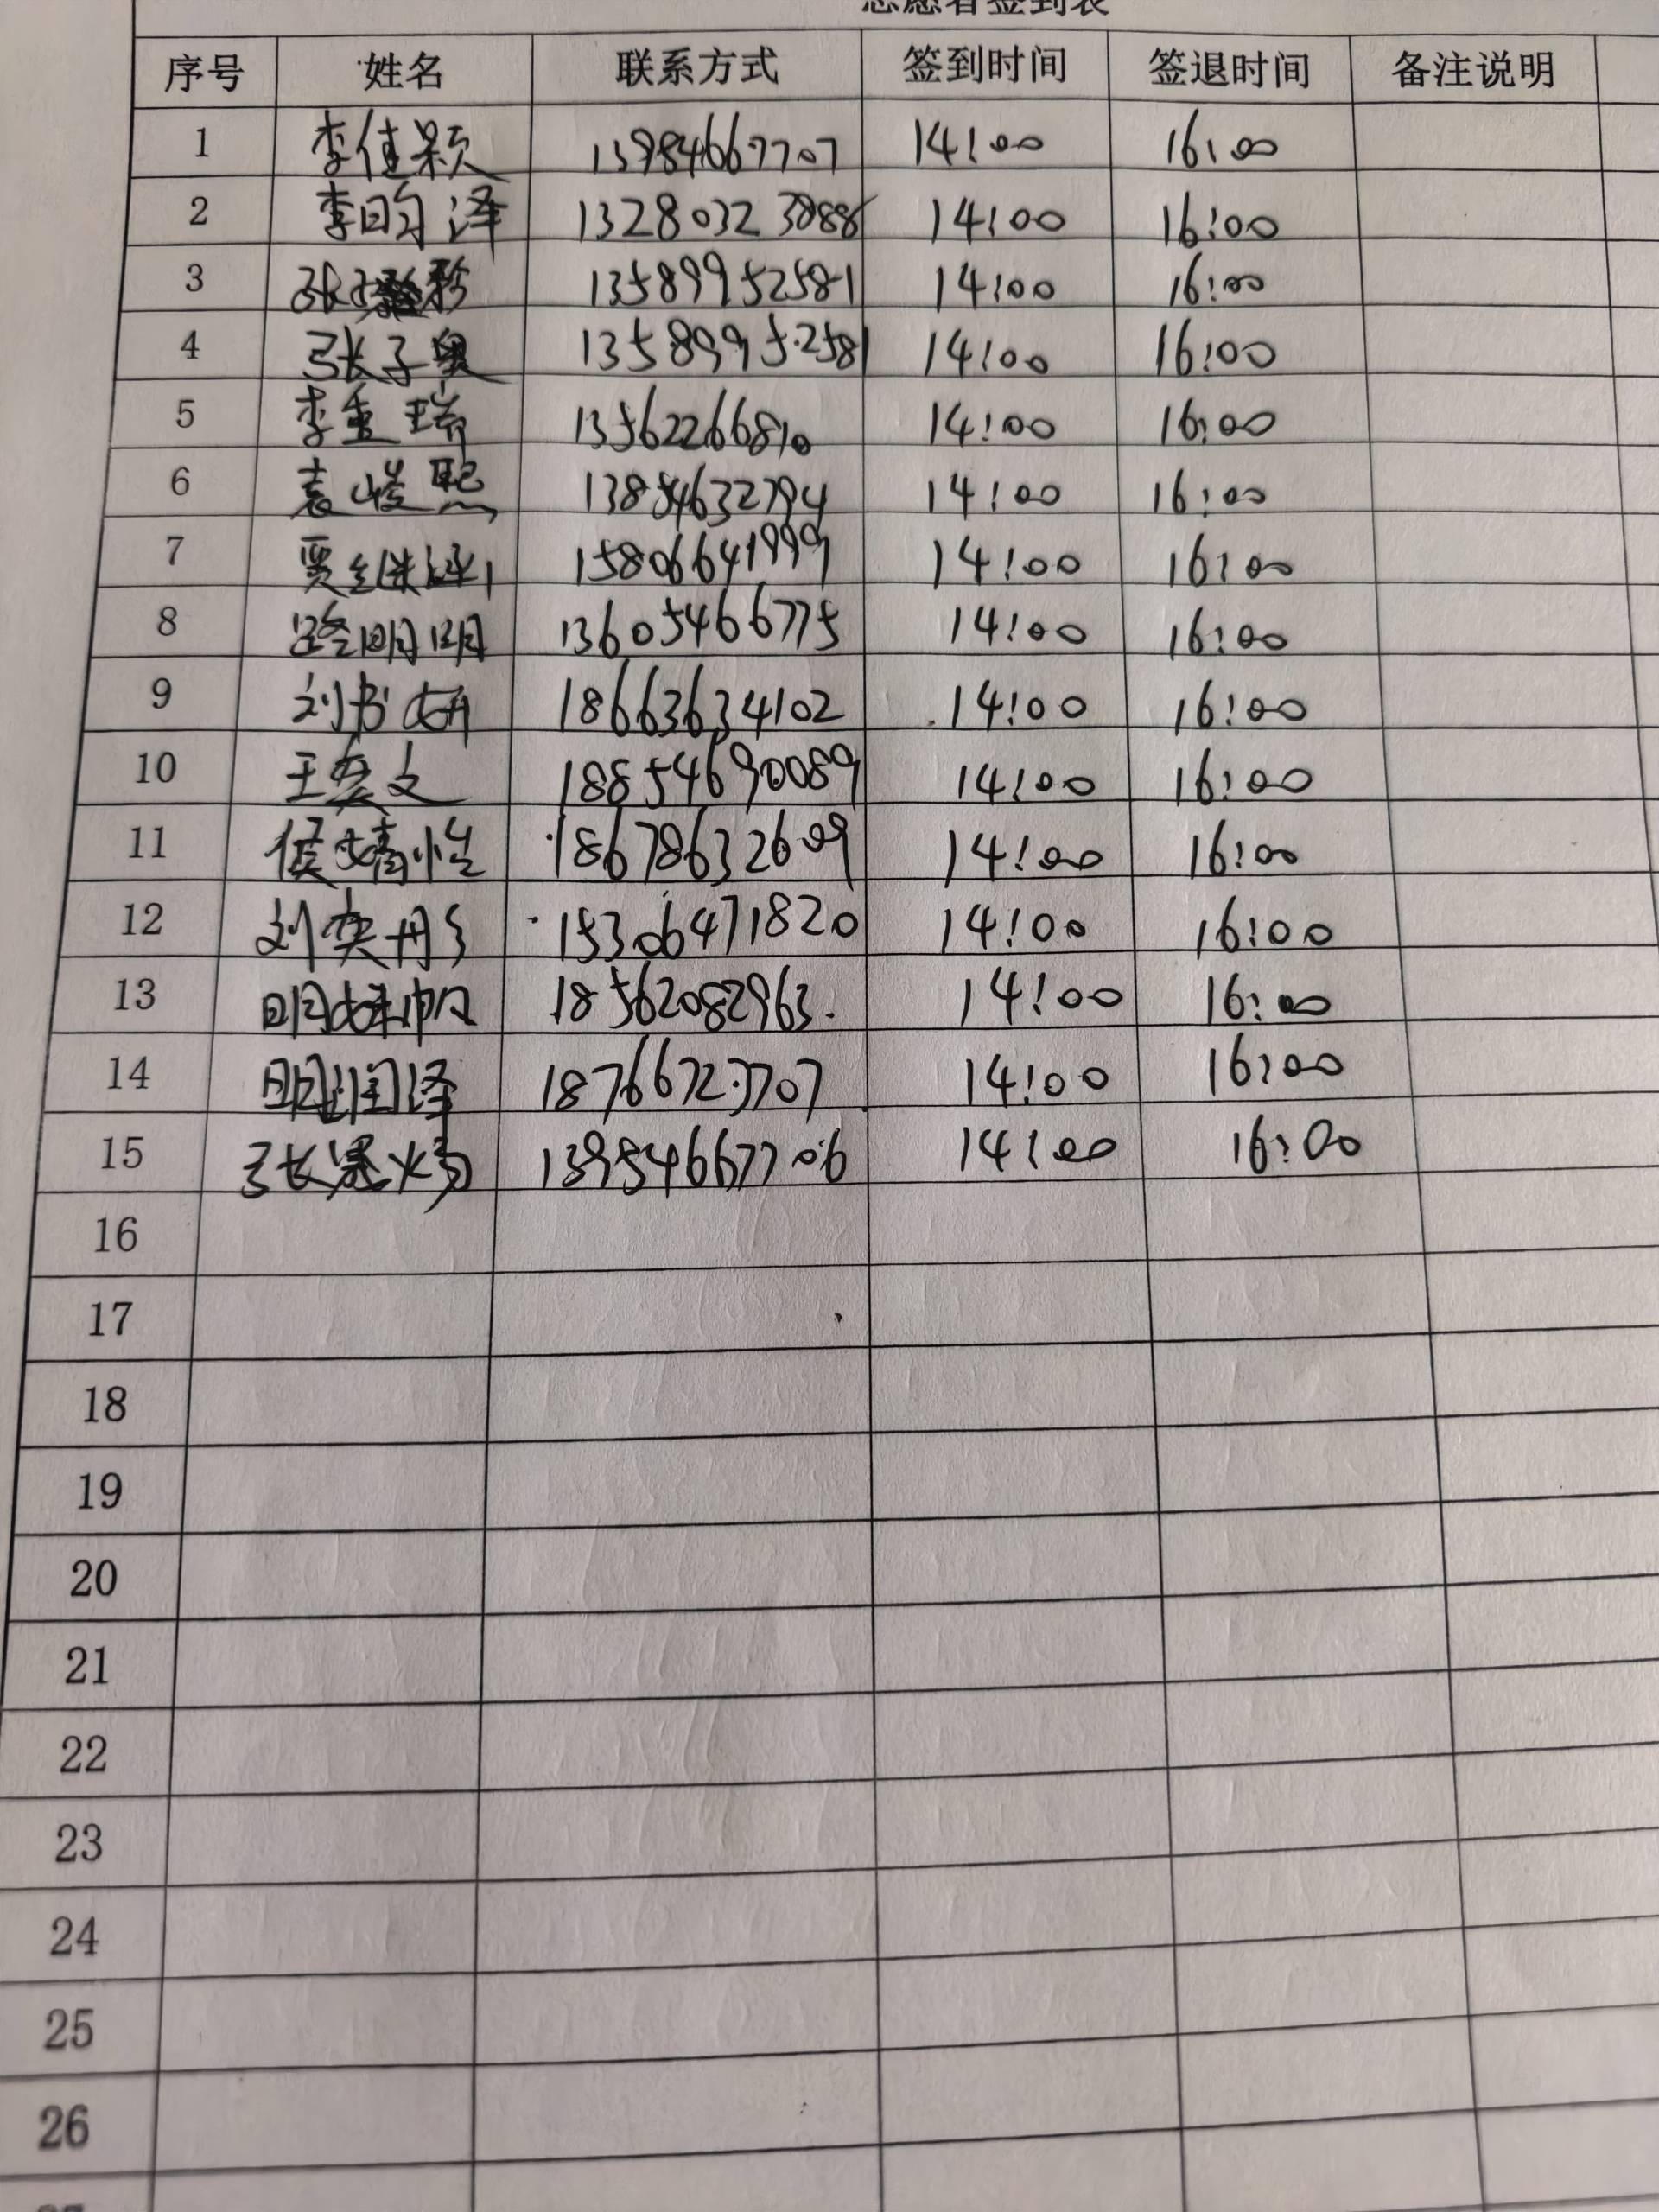 志愿者签到表
序号 姓名 联系方式 签到时间 签退时间 备注说明
1 李佳颖 13984667707 14:00 16:00
2 李昀泽 14:00 16:00
3 张 13589952581 14:00 16:00
4 张子奥 13589952581 14:00 16:00
5 李 瑞 13562266810 14:00 16:00
6 袁 熙 13854632794 14:00 16:00
7 贾 15806641999 14:00 16:00
8 路明明 13605466775 14:00 16:00
9 刘书妍 18663634102 14:00 16:00
10 王奕文 18854690089 14:00 16:00
11 侯婧怡 18678632609 14:00 16:00
12 刘奕彤 15306471820 14:00 16:00
13 明 帆 18562082963 14:00 16:00
14 明润泽 18766723707 14:00 16:00
15 张 炀 13954667706 14:00 16:00
16
17
18
19
20
21
22
23
24
25
26